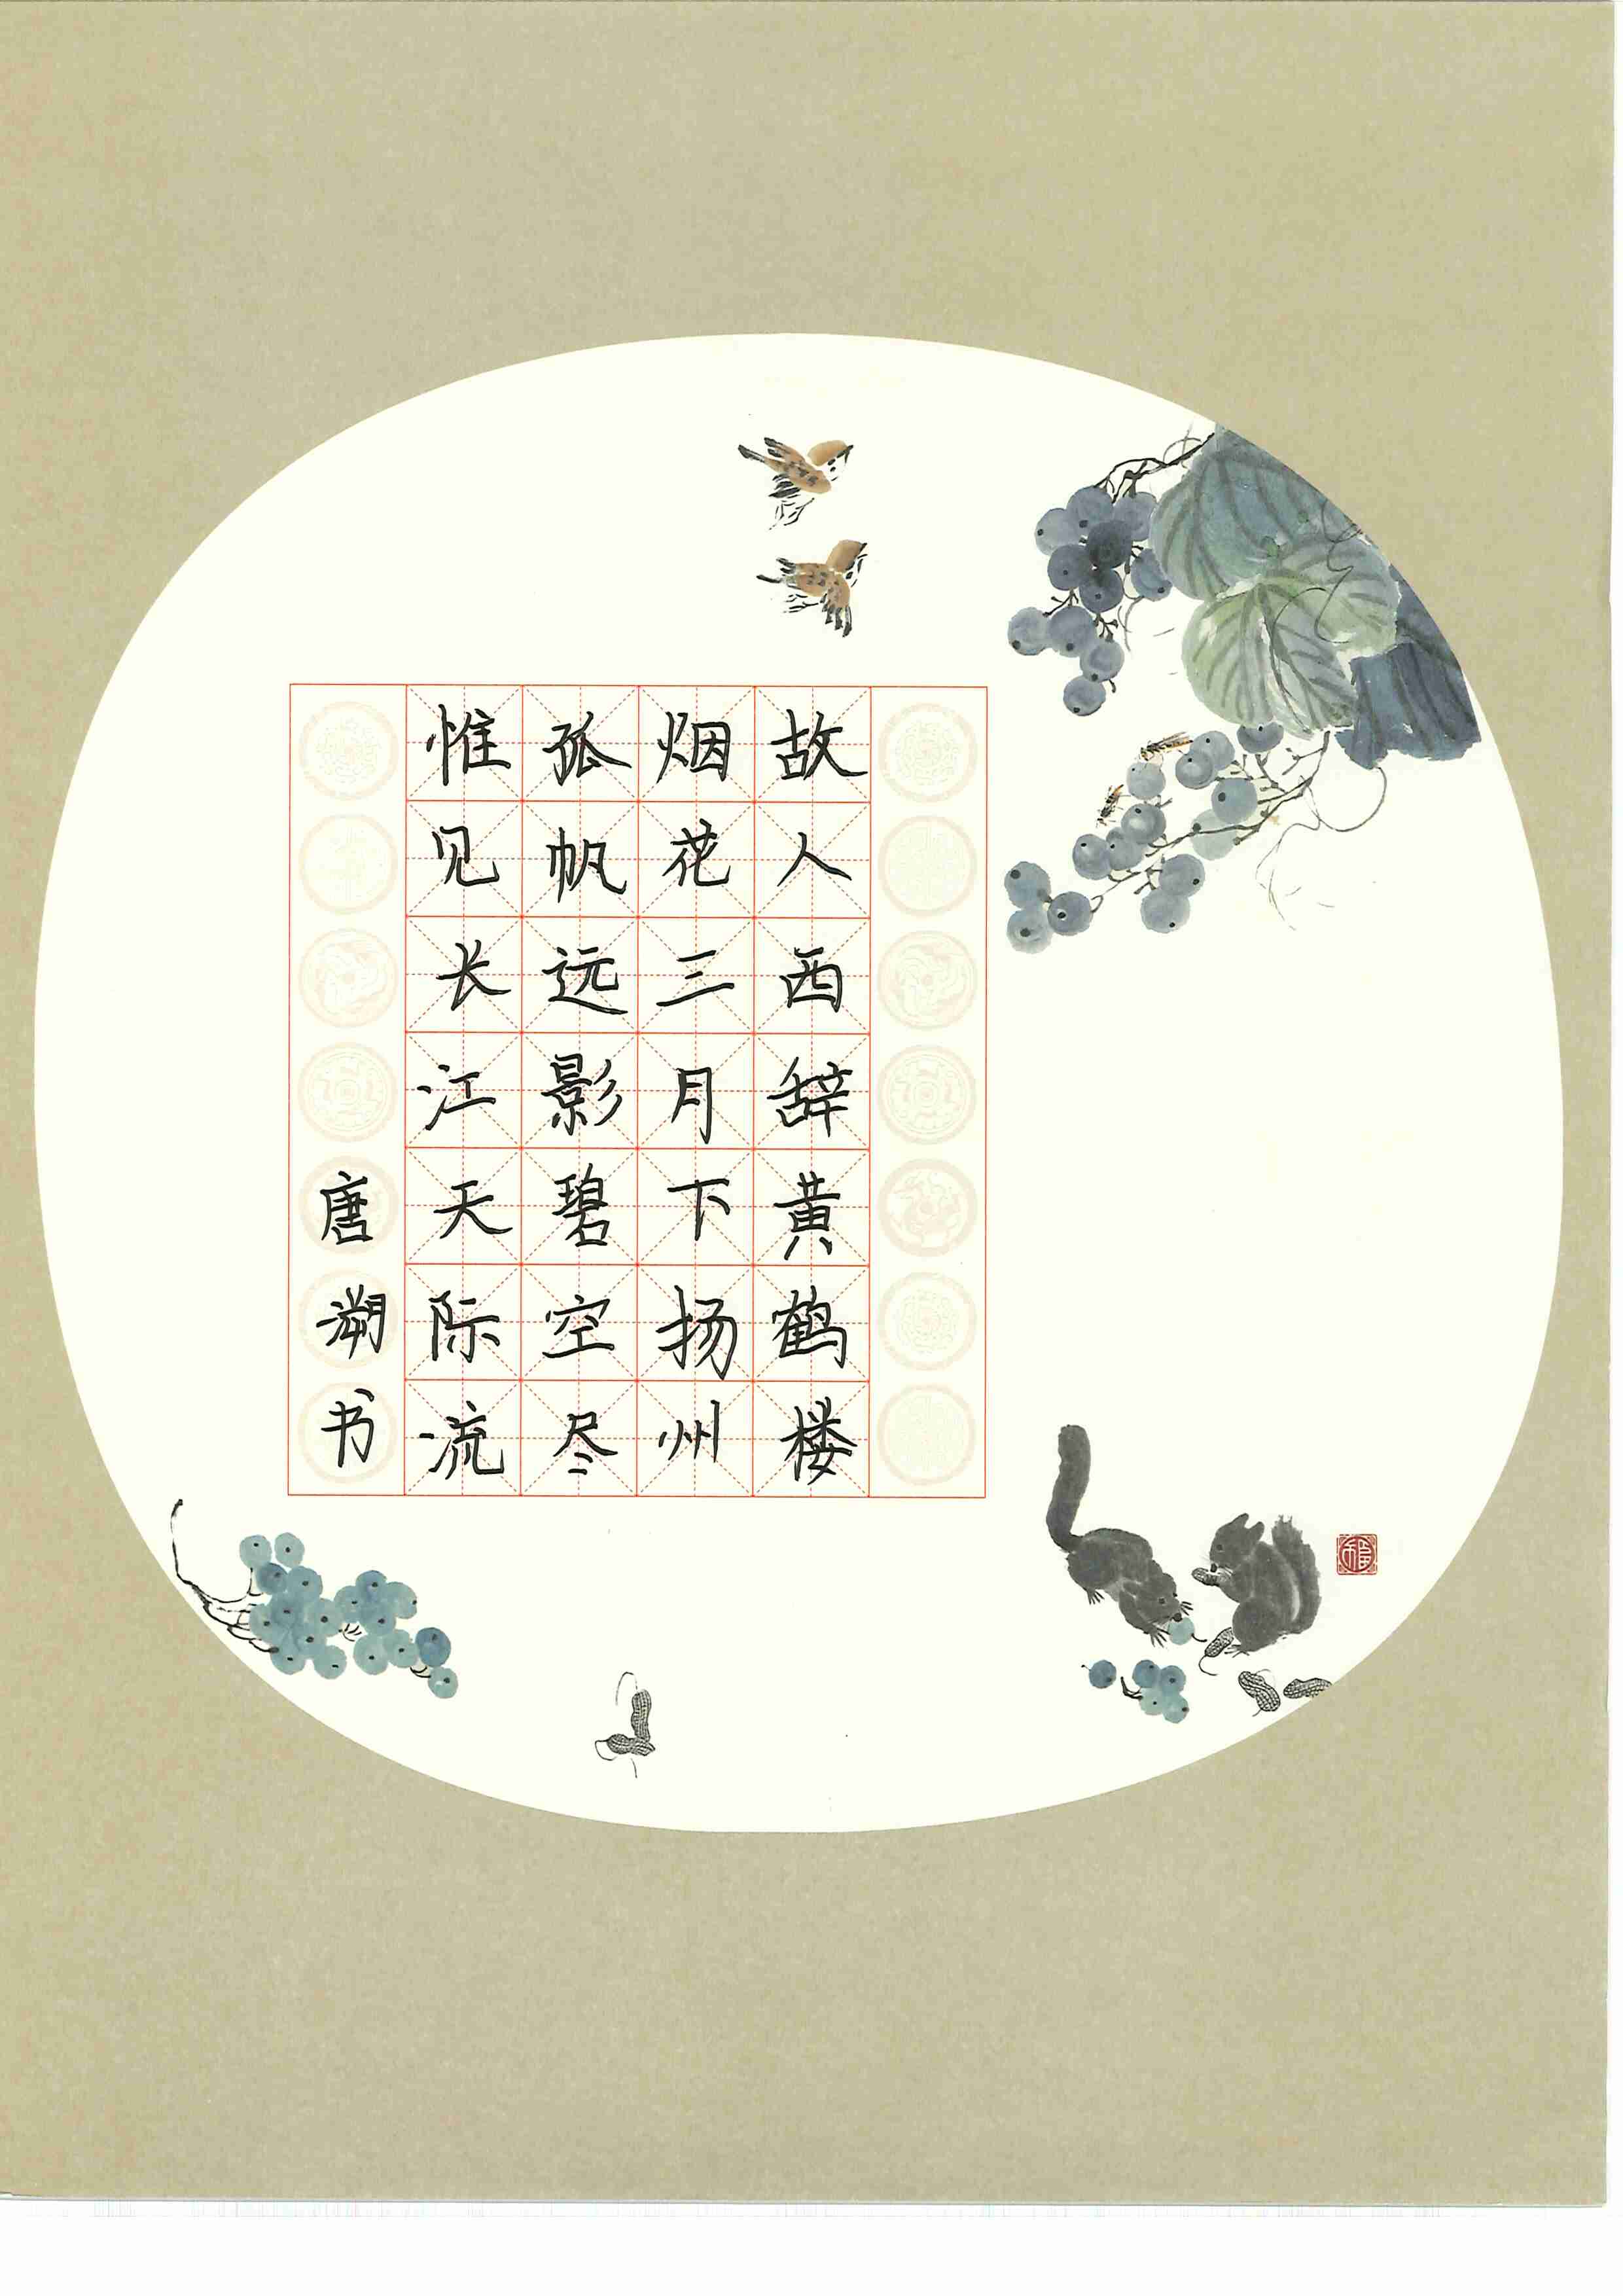 故人西辞黄鹤楼
烟花三月下扬州
孤帆远影碧空尽
惟见长江天际流
唐溯书